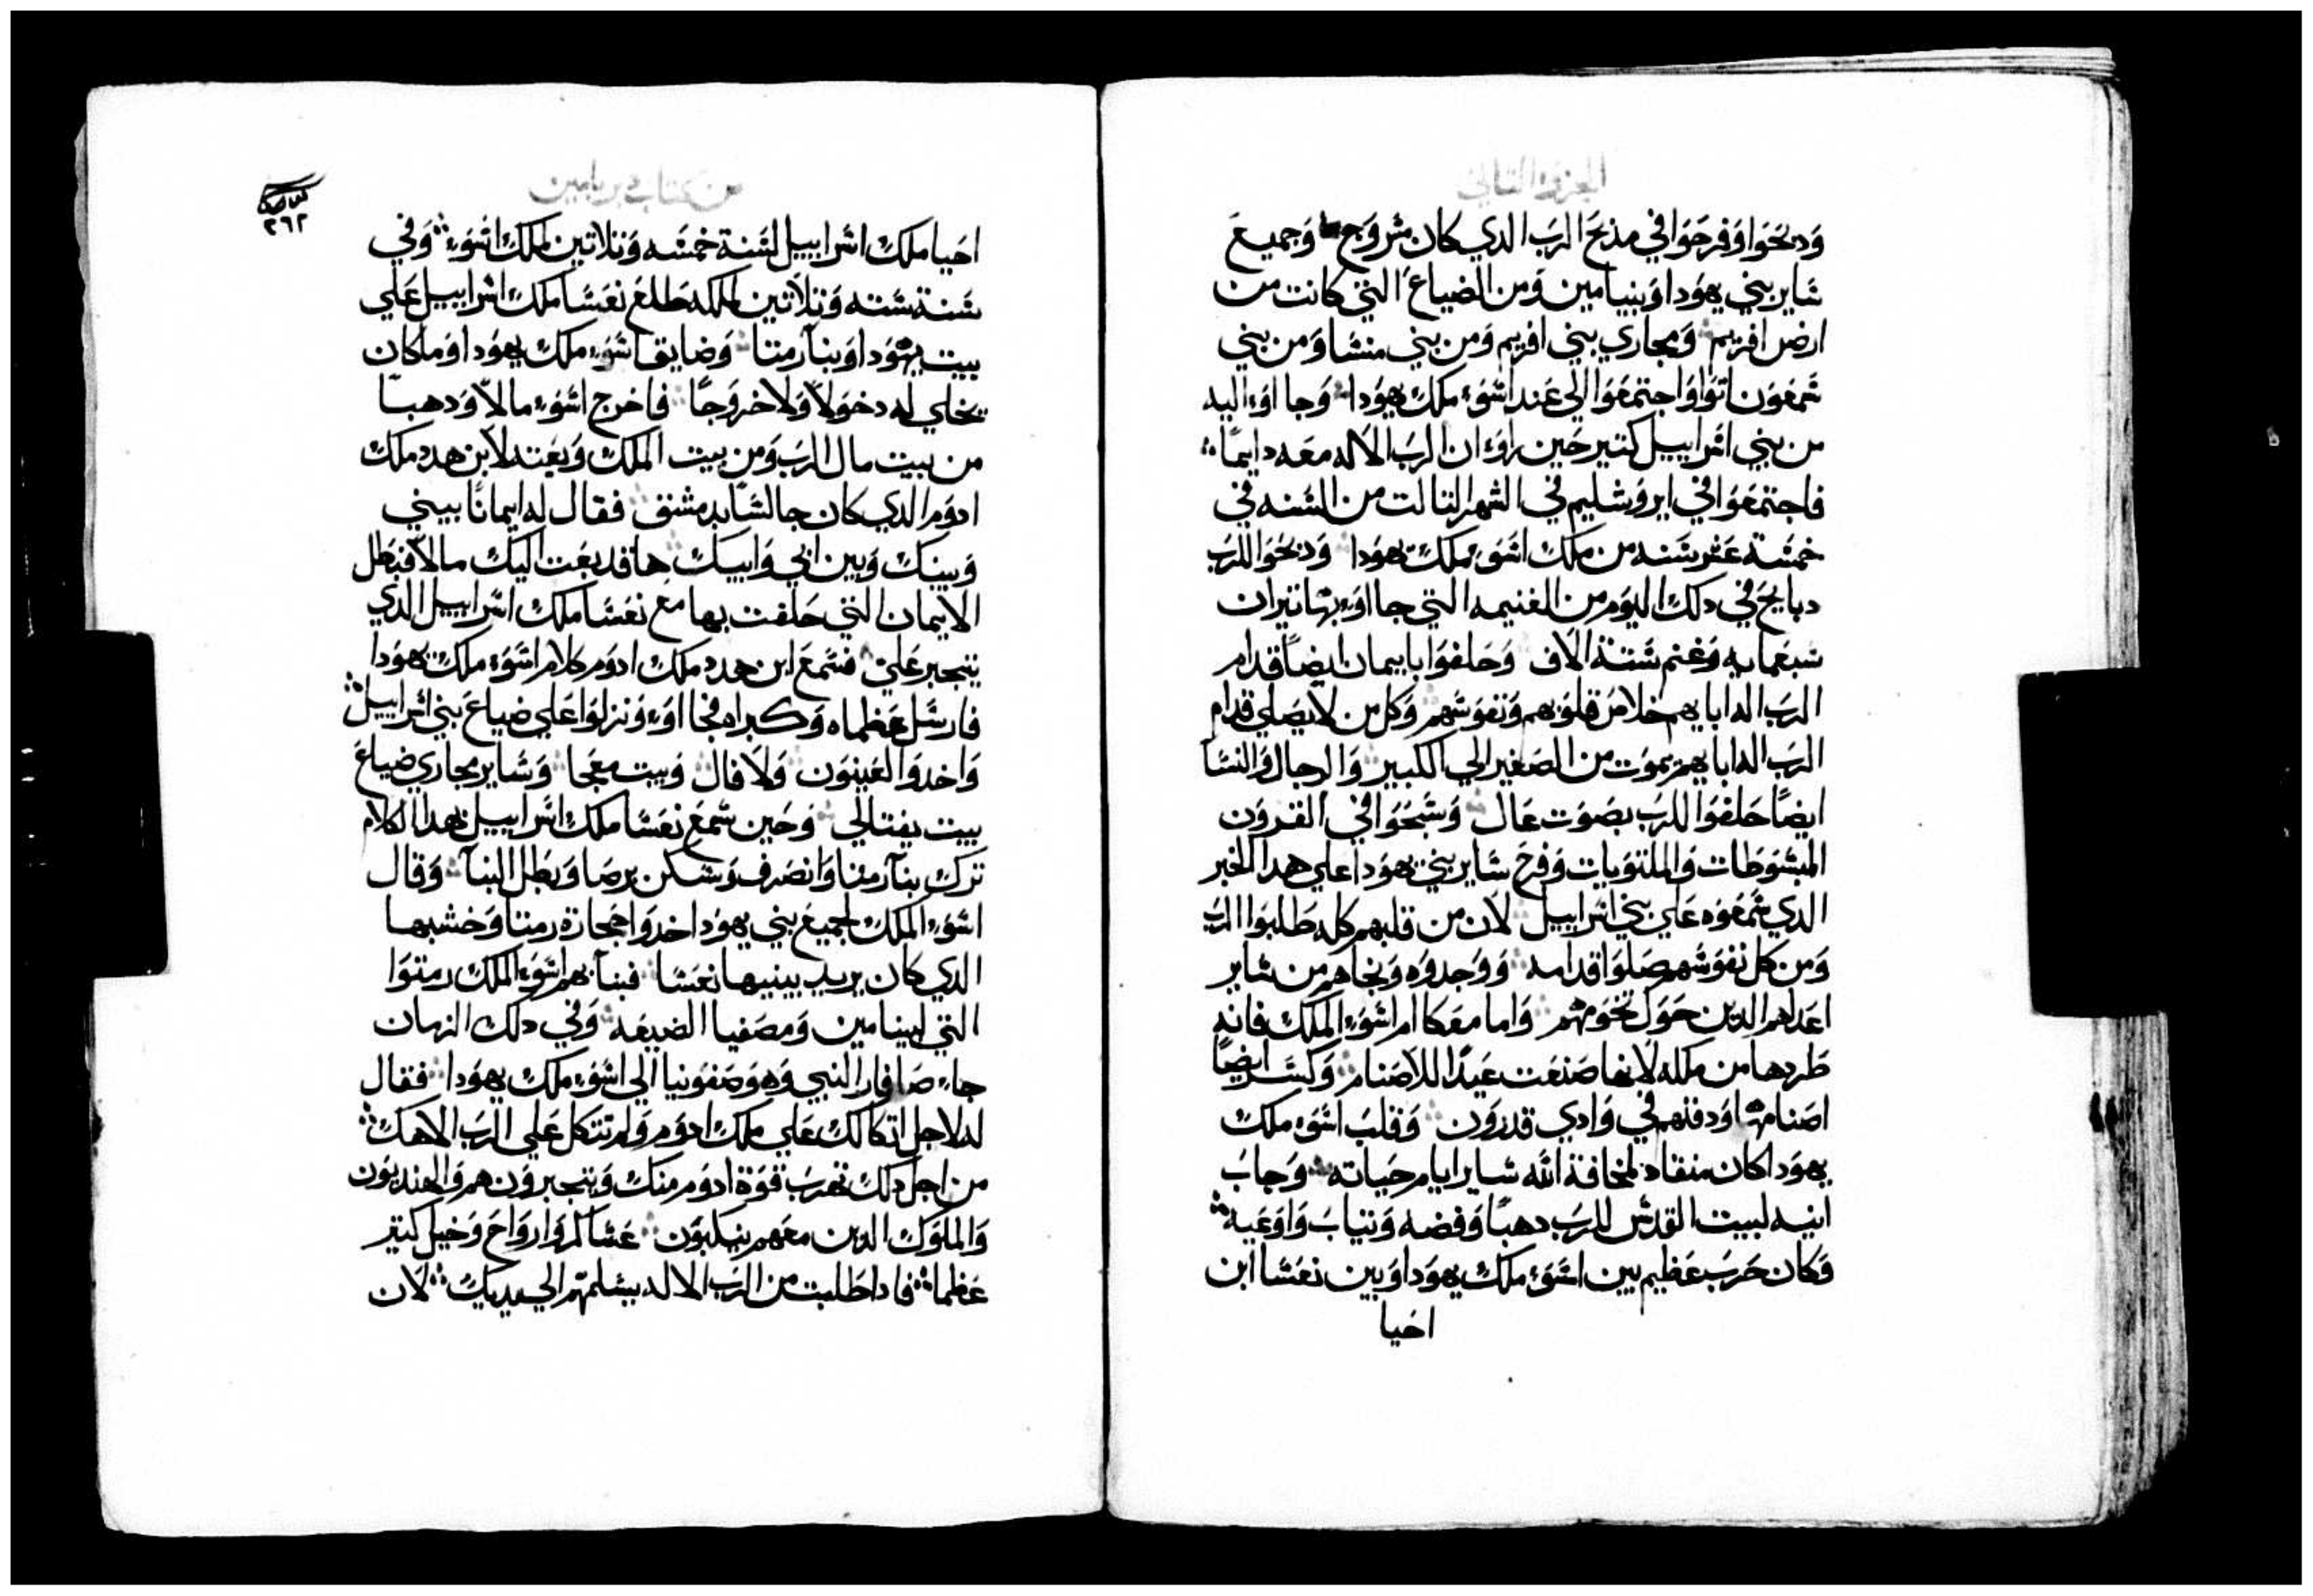 الجزو التاني
ودبحوا وفرحوا في مذبح الرب الدي كان مشروج وجميع
شاير بني يهودا وبنيامين ومن الضياع التي كانت من
ارض افريم ومجاري بني افريم ومن بني منشا ومن بني
شمعون اتوا واجتمعوا الي عند اشوء ملك يهودا وجااوء اليه
من بني اشراييل كتير حين راوء ان الرب الاله معه دايمًا
فاجتمعوا في ايروشليم في الشهر التالت من الشنه في
خمشة عشر شنه من ملك اشوء ملك يهودا ودبحوا للرب
دبايح في دلك اليوم من الغنيمه التي جااوء بها تيران
شبعمايه وغنم شتة الاف وحلفوا بايمان ايضًا قدام
الرب اله ابايهم خلاص قلوبهم ونفوشهم وكل من لا يصلي قدام
الرب اله ابايهم يموت من الصغير الي الكبير والرجال والنشآ
ايضًا حلفوا للرب بصوت عال وشبحوا في القرون
المبشوطات والملتويات وفرح شاير بني يهودا علي هدا الخبر
الدي شمعوه علي بني اشراييل لان من قلبهم كله طلبوا الرب
ومن كل نفوشهم صلوا قدامه ووجدوه ونجاهم من شاير
اعداهم الدين حول تخومهم واما معكا ام اشوء الملك فانه
طردها من ملكه لانها صنعت عيدًا للاصنام وكشر ايضًا
اصنامها ودفنهم في وادي قدرون وقلب اشوء ملك
يهودا كان منقاد لمخافة الله شاير ايام حياته وجاب
انيه لبيت القدش للرب دهبًا وفضه وتياب واوعيه
وكان حرب عظيم بين اشوء ملك يهودا وبين نعشا ابن
احيا
من كتاب برياميين
٢٦٢
احيا ملك اشراييل لشنة خمشه وتلاتين لملك اشوء وفي
شنة شته وتلاتين لملكه طلع نعشا ملك اشراييل علي
بيت يهودا وبنآ رمتا وضايق اشوء ملك يهودا وماكان
يخلي له دخولاً ولا خروجًا فاخرج اشوء مالاً ودهبًا
من بيت مال الرب ومن بيت الملك وبعته لابن هدد ملك
ادوم الدي كان جالشًا بدمشق فقال له ايمانًا بيني
وبينك وبين ابي وابيك ها قد بعت اليك مالاً فبطل
الايمان التي حلفت بها مع نعشا ملك اشراييل الدي
يتجبر علي فشمع ابن هدد ملك ادوم كلام اشوء ملك يهودا
فارشل عظماه وكبراه فجااوء ونزلوا علي ضياع بني اشراييل
واخدوا لعينون ولافال وبيت معجا وشاير مجاري ضياع
بيت يفتالي وحين شمع نعشا ملك اشراييل بهدا الكلام
ترك بنآ رمتا وانصرف وشكن برصا وبطل البنآ وقال
اشوء الملك لجميع بني يهودا خدوا حجارة رمتا وخشبها
الدي كان يريد يبنيها نعشا فبنآ بهم اشوء الملك رمتوا
التي لبنيامين ومصفيا الضيعه وفي دلك الزمان
جاء صافار النبي وهو صفونيا الي اشوء ملك يهودا فقال
له لاجل اتكالك علي ملك ادوم ولم تتكل علي الرب الاهك
من اجل دلك تهرب قوة ادوم منك ويتجبرون هم والهنديون
والملوك الدين معهم ينكبون عشاكر وارواح وخيل كتير
عظما فادا طلبت من الرب الاله يشلمهم الي يديك لان